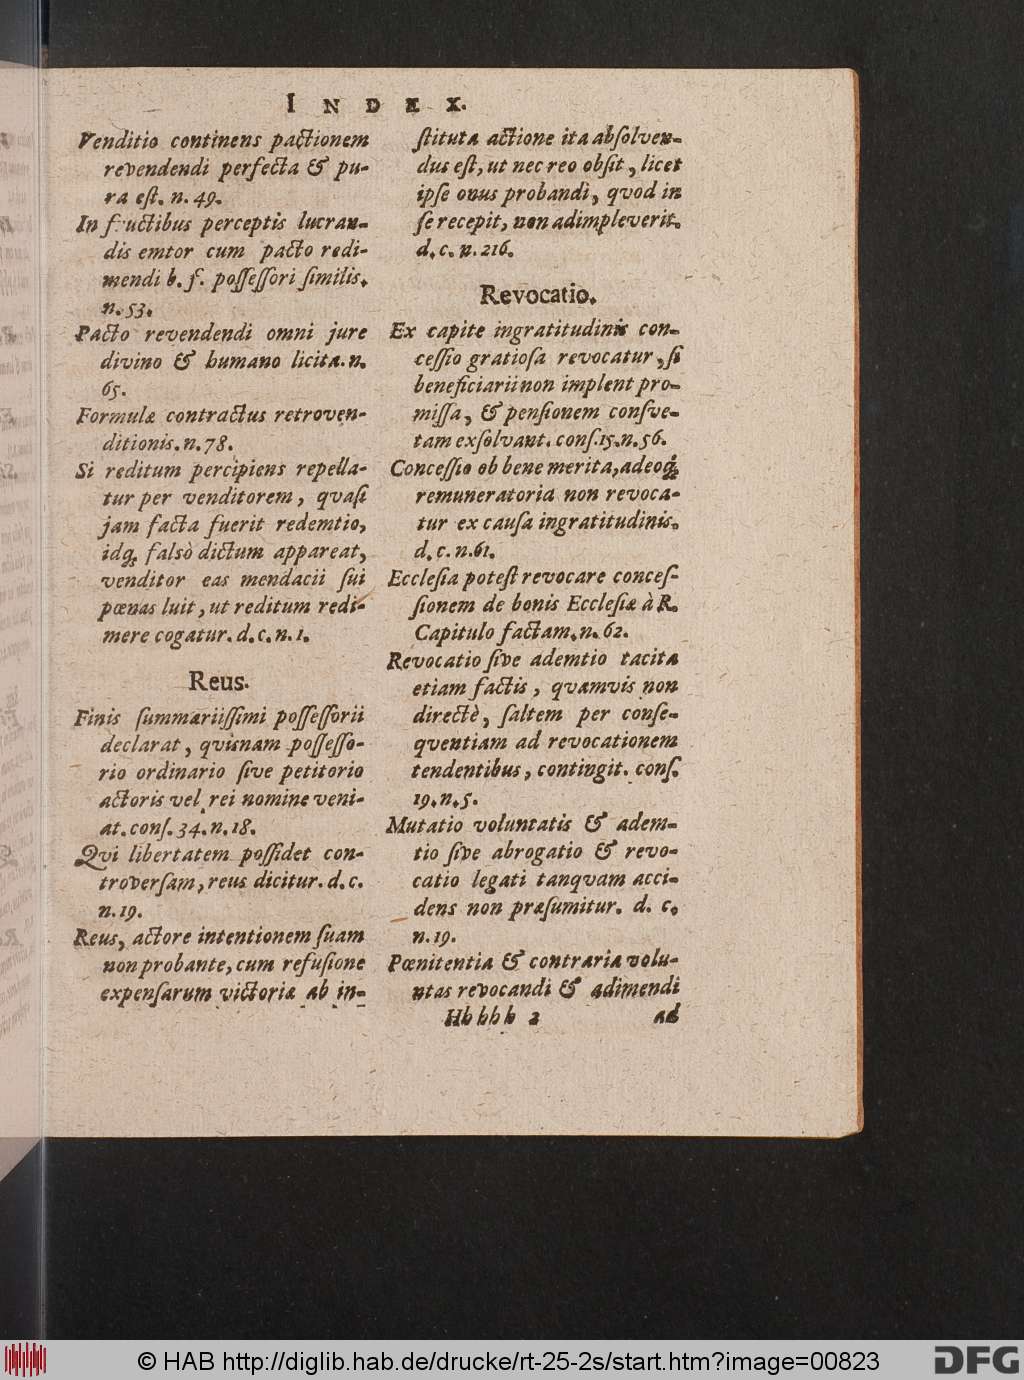 INDEX.
Venditio continens pactionem
revendendi perfecta & pu-
ra eſt. n. 49.
In fructibus perceptis lucran-
dis emtor cum pacto redi-
mendi b. f. poſſeſſori ſimilis.
n. 53.
Pacto revendendi omni jure
divino & humano licita. n.
65.
Formulæ contractus retroven-
ditionis. n. 78.
Si reditum percipiens repella-
tur per venditorem, qvaſi
jam facta fuerit redemtio,
idq; falsò dictum appareat,
venditor eas mendacii ſui
pœnas luit, ut reditum redi-
mere cogatur. d. c. n. 1.
Reus.
Finis ſummariiſſimi poſſeſſorii
declarat, qvisnam poſſeſſo-
rio ordinario ſive petitorio
actoris vel rei nomine veni-
at. conſ. 34. n. 18.
Qvi libertatem poſſidet con-
troverſam, reus dicitur. d. c.
n. 19.
Reus, actore intentionem ſuam
non probante, cum refuſione
expenſarum victoria ab in-
ſtituta actione ita abſolven-
dus eſt, ut nec reo obſit, licet
ipſe onus probandi, qvod in
ſe recepit, non adimpleverit.
d. c. n. 216.
Revocatio.
Ex capite ingratitudinis con-
ceſſio gratioſa revocatur, ſi
beneficiarii non implent pro-
miſſa, & penſionem conſve-
tam exſolvant. conſ. 15. n. 56.
Conceſſio ob bene merita, adeoq;
remuneratoria non revoca-
tur ex cauſa ingratitudinis.
d. c. n. 61.
Eccleſia poteſt revocare conceſ-
ſionem de bonis Eccleſiæ à R.
Capitulo factam. n. 62.
Revocatio ſive ademtio tacita
etiam factis, qvamvis non
directè, ſaltem per conſe-
qventiam ad revocationem
tendentibus, contingit. conſ.
19. n. 5.
Mutatio voluntatis & adem-
tio ſive abrogatio & revo-
catio legati tanqvam acci-
dens non præſumitur. d. c.
n. 19.
Pœnitentia & contraria volu-
ntas revocandi & adimendi
Hh hhh 2 ad
© HAB http://diglib.hab.de/drucke/rt-25-2s/start.htm?image=00823
DFG